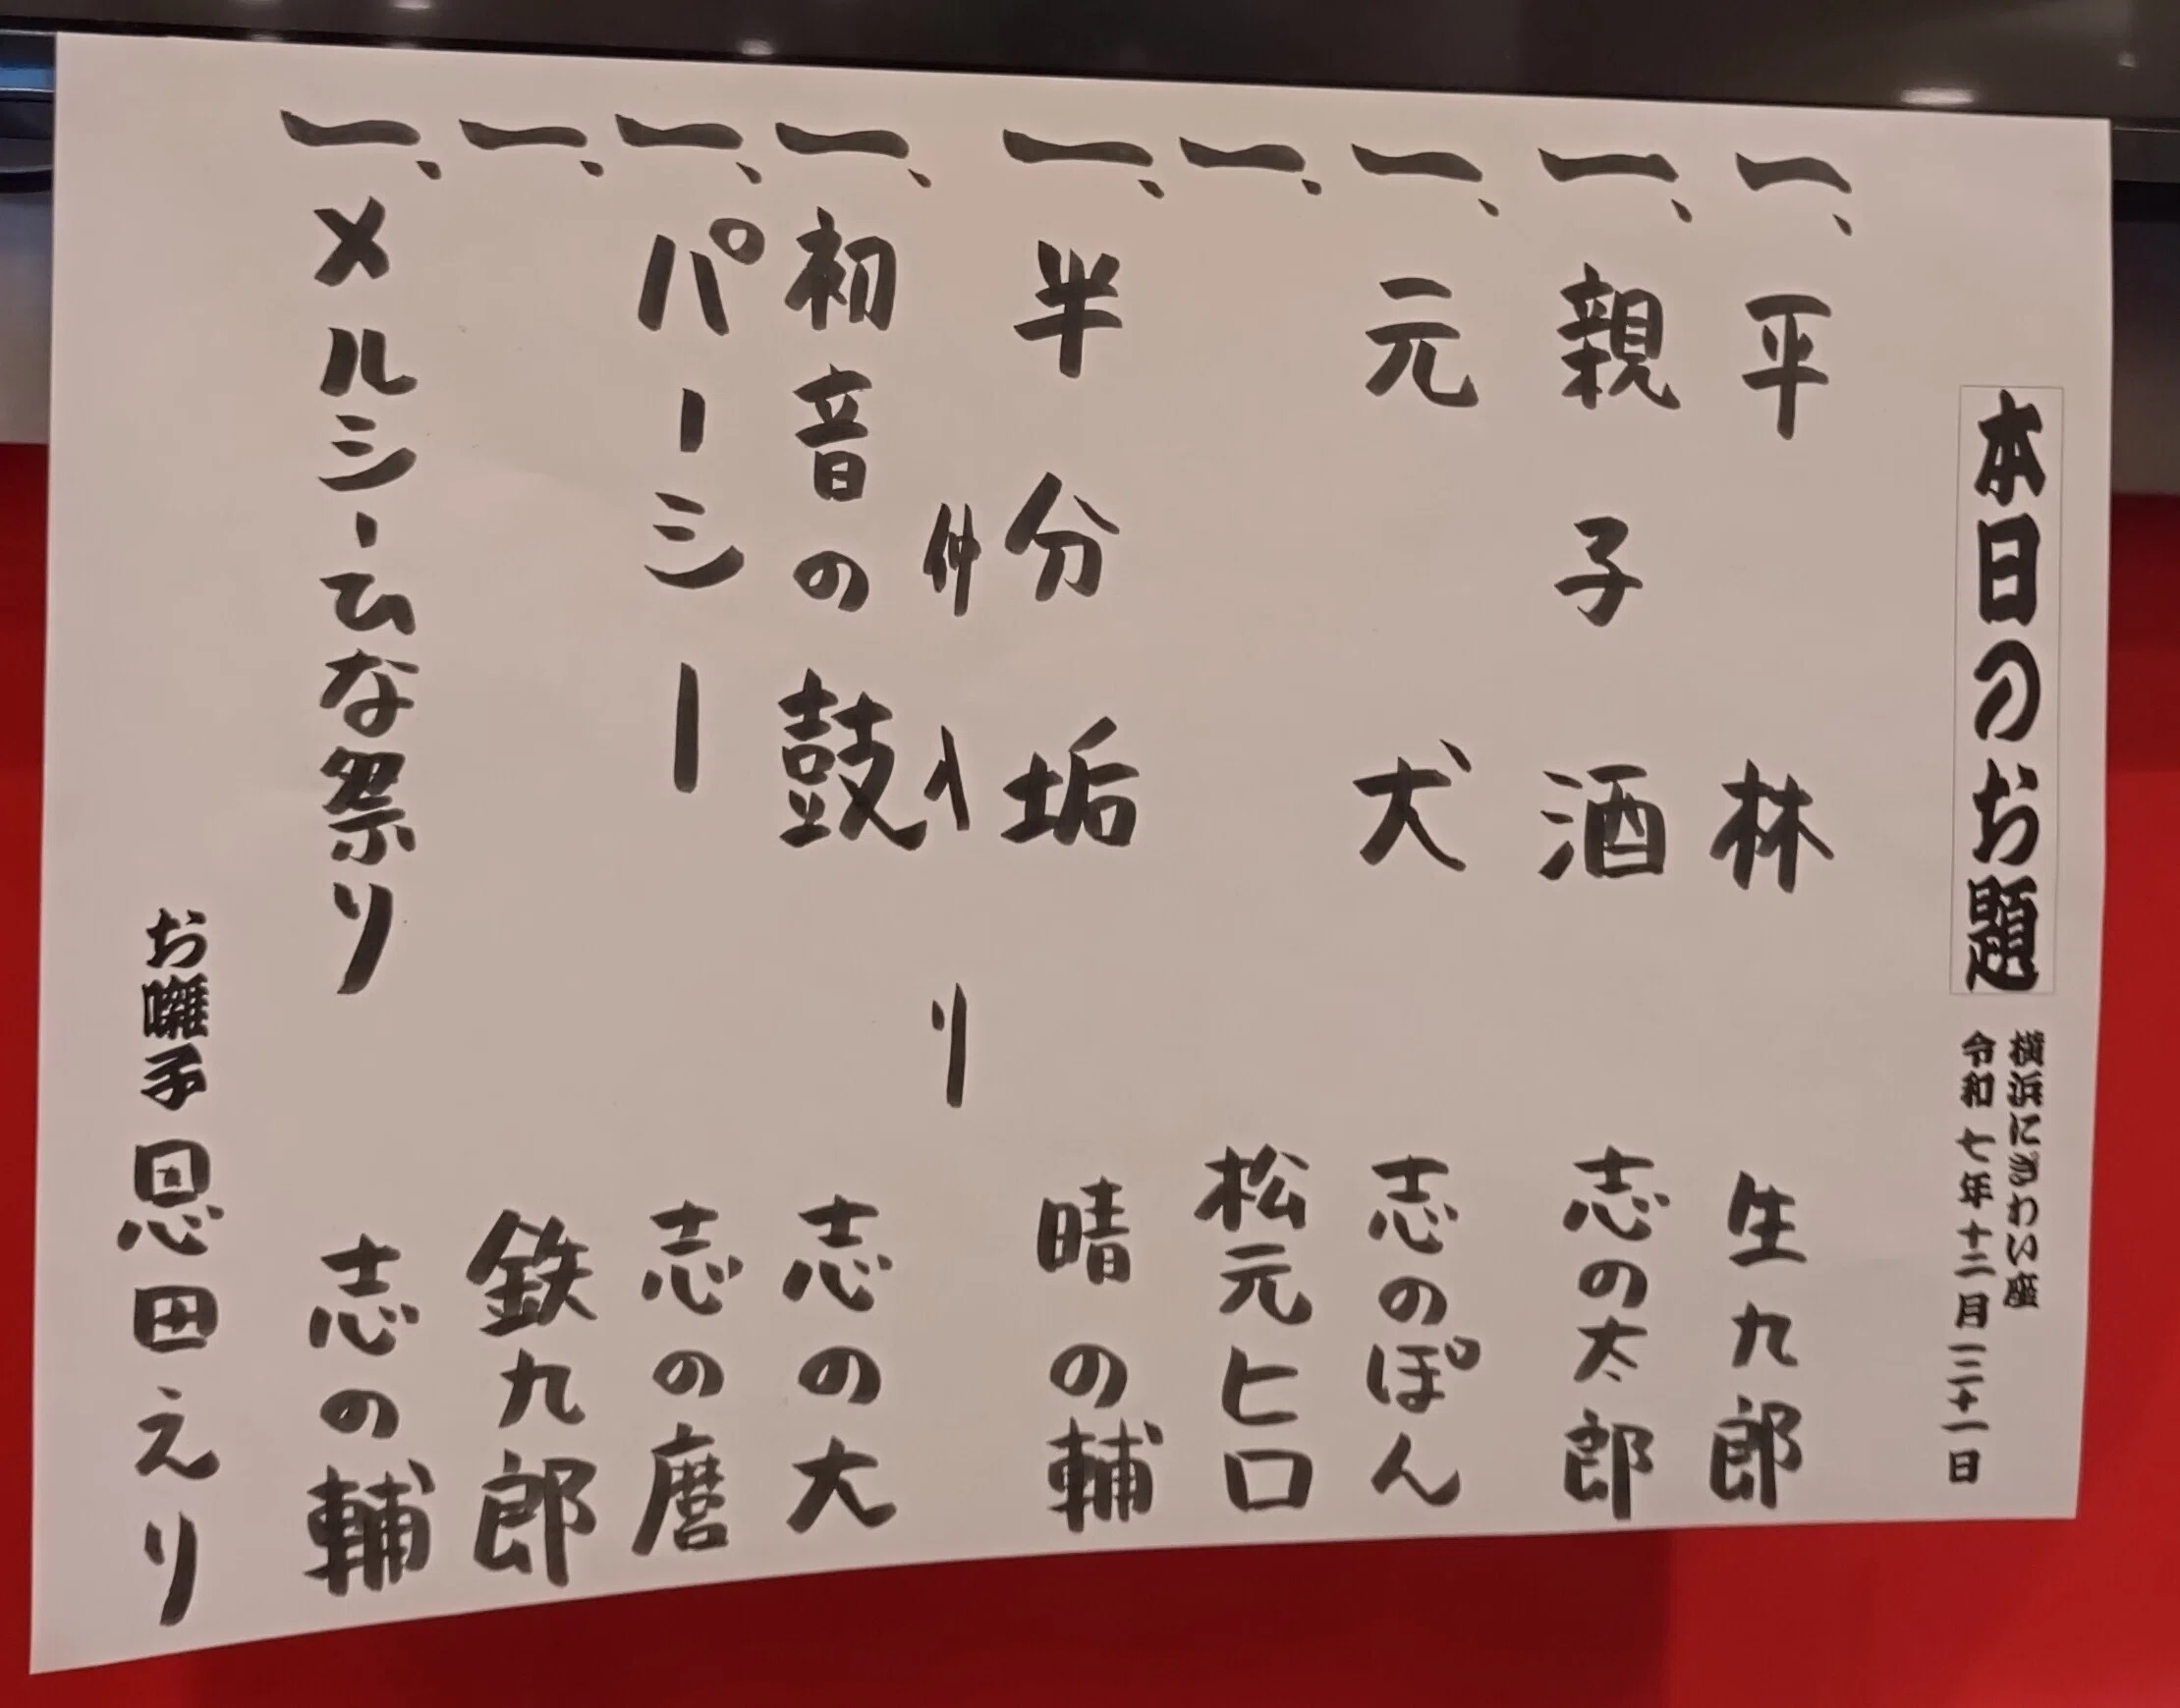 本日のお題
横浜にぎわい座
令和七年十二月三十一日
一、平林 生九郎
一、親子酒 志の太郎
一、元犬 志のぽん
一、松元ヒロ
一、半分垢 晴の輔
仲入り
一、初音の鼓 志の大
一、パーシー 志の麿
一、鉄九郎
一、メルシーひな祭り 志の輔
お囃子 恩田えり